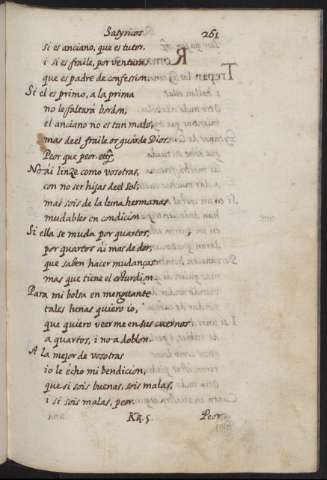 Satyricos. 261
si es anciano, que es tutor,
i si es fraile, por ventura,
que es padre de confesion.
Si el es primo, a la prima
no le faltará bordon,
el anciano no es tan malo,
mas de el fraile os guarde Dios.
Peor que peor. etc.
No ái linze como vosotras,
con no ser hijas de el sol,
mas sois de la luna hermanas
mudables en condicion.
Si ella se muda por quartos,
por quartos ái mas de dos,
que saben hacer mudanças
mas que tiene el esturdion.
Para mi bolsa en menguante
tales lunas quiero io,
que quiero veerme en sus cuernos
a quartos, i no a doblon.
A la mejor de vosotras
io le echo mi bendicion,
que si sois buenas, sois malas,
i si sois malas, peor.
Kk 5. Peor